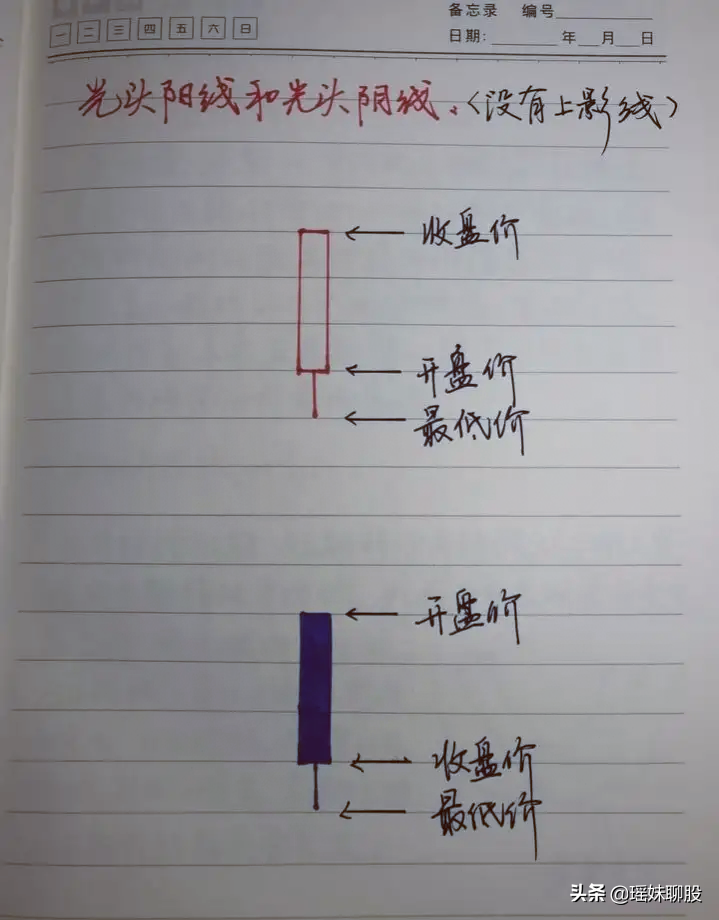 备忘录 编号
一 二 三 四 五 六 日
日期: 年 月 日
光头阳线和光头阴线.(没有上影线)
收盘价
开盘价
最低价
开盘价
收盘价
最低价
头条 @瑶妹聊股